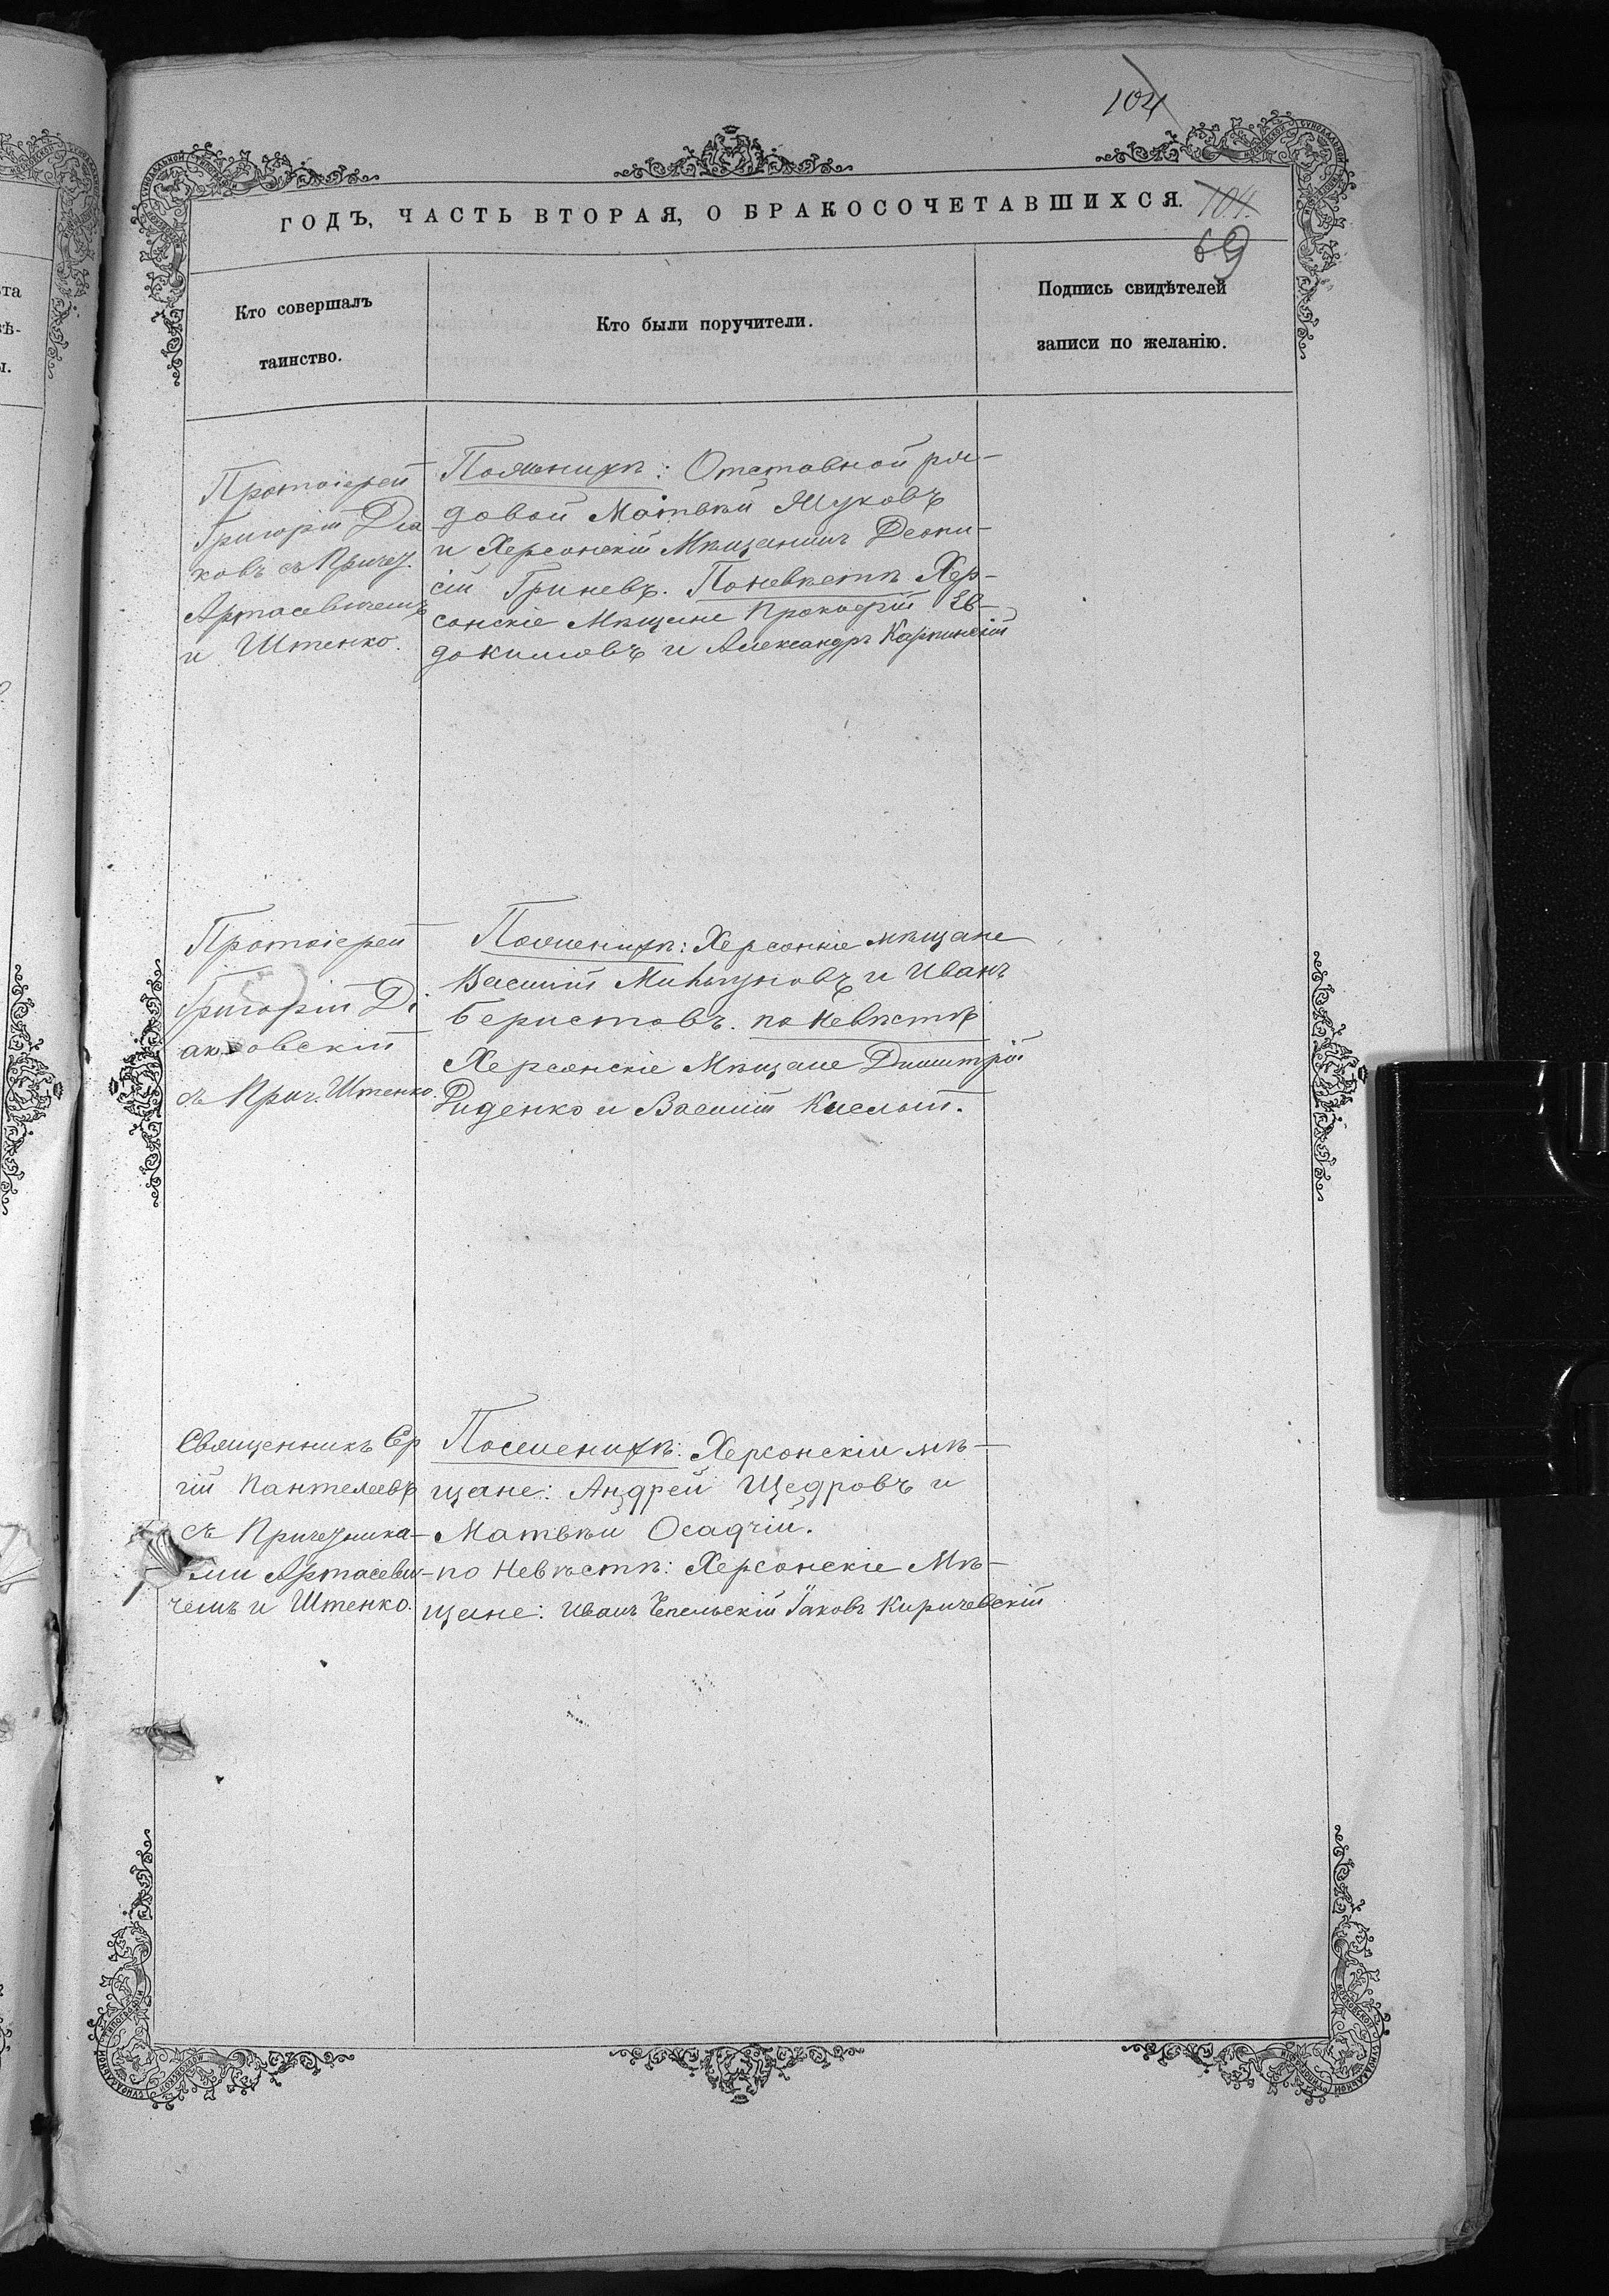 104
ГОДЪ, ЧАСТЬ ВТОРАЯ, О БРАКОСОЧЕТАВШИХСЯ.
104.
69
Кто совершалъ
таинство.
Кто были поручители.
Подпись свидѣтелей
записи по желанію.
Протоіерей
Григорій Діа
ковъ съ Причет.
Артасевичемъ
и Штенко.
По женихѣ: Отставной ря-
довой Матвѣй Жуковъ
и Херсонскій Мѣщанинъ Деони-
сій Гриневъ. По невѣстѣ Хер-
сонскіе Мѣщане Прокофій Ев-
докимовъ и Александръ Карпинскій
Протоіерей
Григорій Ді
аковскій
съ Прич. Штенко.
По женихѣ: Херсонкіе мѣщане
Василій и Иванъ
Беристовъ. по Невѣстѣ
Херсонскіе Мѣщане Димитрій
Диденко и Василій Кислый.
Священникъ Сер
гій Пантелеевъ
съ Причетника-
ми Артасеви-
чемъ и Штенко.
По женихѣ: Херсонскіи мѣ-
щане: Андрей Щедровъ и
Матвѣй Осадчій.
по Невѣстѣ: Херсонскіе Мѣ-
щане: Иванъ Яковъ Киричевскій
та
ѣ-